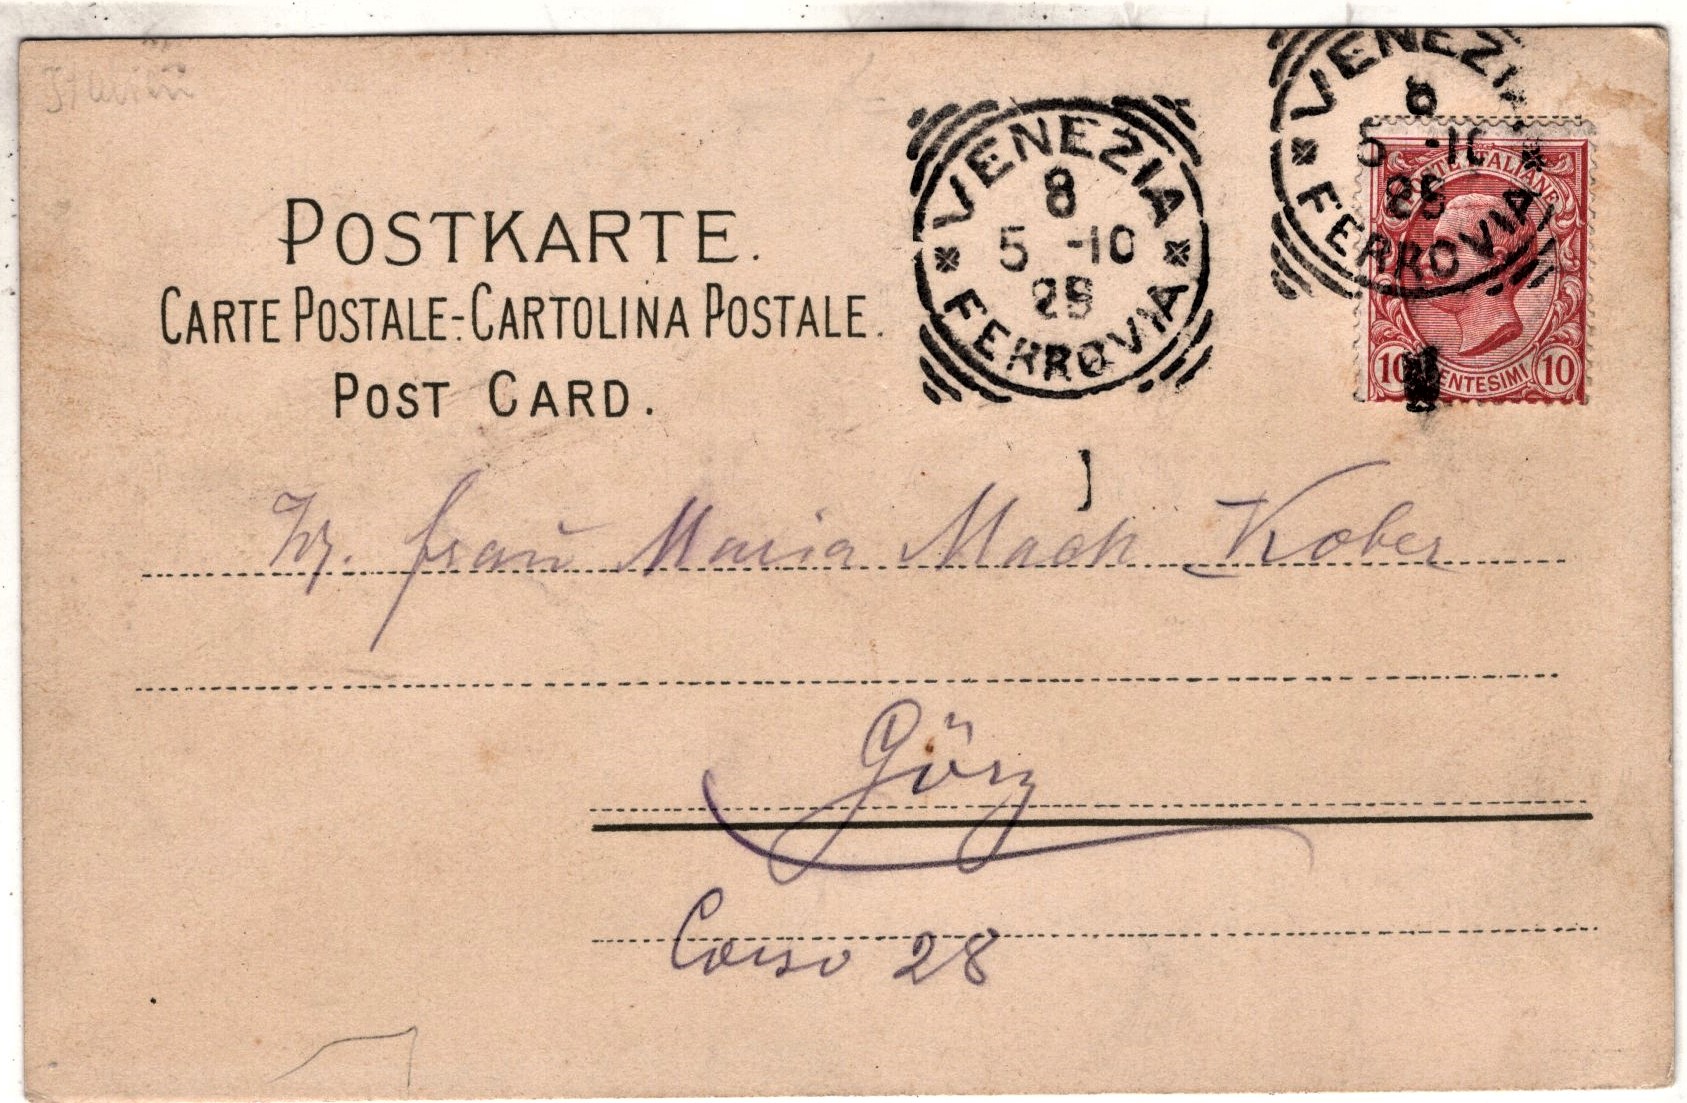 POSTKARTE.
CARTE POSTALE-CARTOLINA POSTALE.
POST CARD.
VENEZIA
8
5 -10
FERROVIA
VENEZIA
8
5 -10
FERROVIA
POSTE ITALIANE
10 CENTESIMI 10
Frau Maria Mach Kober
Görz
Corso 28